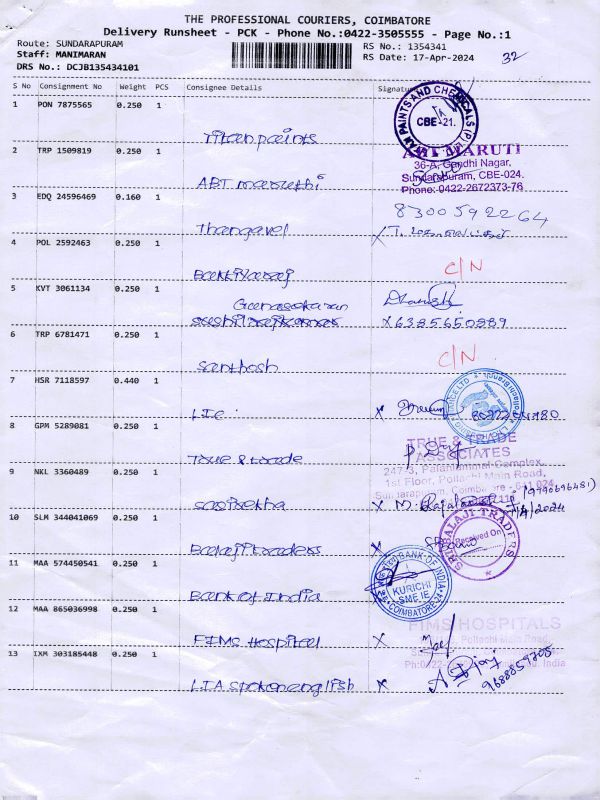 THE PROFESSIONAL COURIERS, COIMBATORE
Delivery Runsheet - PCK - Phone No.:0422-3505555 - Page No.:1
Route: SUNDARAPURAM
Staff: MANIMARAN
DRS No.: DCJB135434101
RS No.: 1354341
RS Date: 17-Apr-2024
32
S No Consignment No Weight PCS Consignee Details Signature
1 PON 7875565 0.250 1
Titan paints
PAINTS AND CHEMICALS (P)
CBE-21.
2 TRP 1509819 0.250 1
ABT maruthi
ABT MARUTI
36-A, Gandhi Nagar,
Sundarapuram, CBE-024.
Phone: 0422-2672373-76
3 EDQ 24596469 0.160 1
Thangavel
8300592264
4 POL 2592463 0.250 1
Bakkiyaraj
C/N
5 KVT 3061134 0.250 1
Gunasekaran
x 6385650989
6 TRP 6781471 0.250 1
Santhosh
C/N
7 HSR 7118597 0.440 1
LIC
x
8 GPM 5289081 0.250 1
True & trade
TRUE & TRADE
ASSOCIATES
247-3, Palaniammal Complex,
1st Floor, Pollachi Main Road,
Sundarapuram, Coimbatore - 641 024.
9 NKL 3360489 0.250 1
Sasirekha
x M. Rajalakshmi (9790696481)
10 SLM 344041069 0.250 1
Balaji traders
x
SRI BALAJI TRADERS
Received On
11 MAA 574450541 0.250 1
Bank of India
BANK OF INDIA
KURICHI
SME.IE
COIMBATORE-24
12 MAA 865036998 0.250 1
FIMS Hospital
x
FIMS HOSPITALS
Pollachi Main Road,
India
13 IXM 303185448 0.250 1
LIA spoken english
x
9688859705